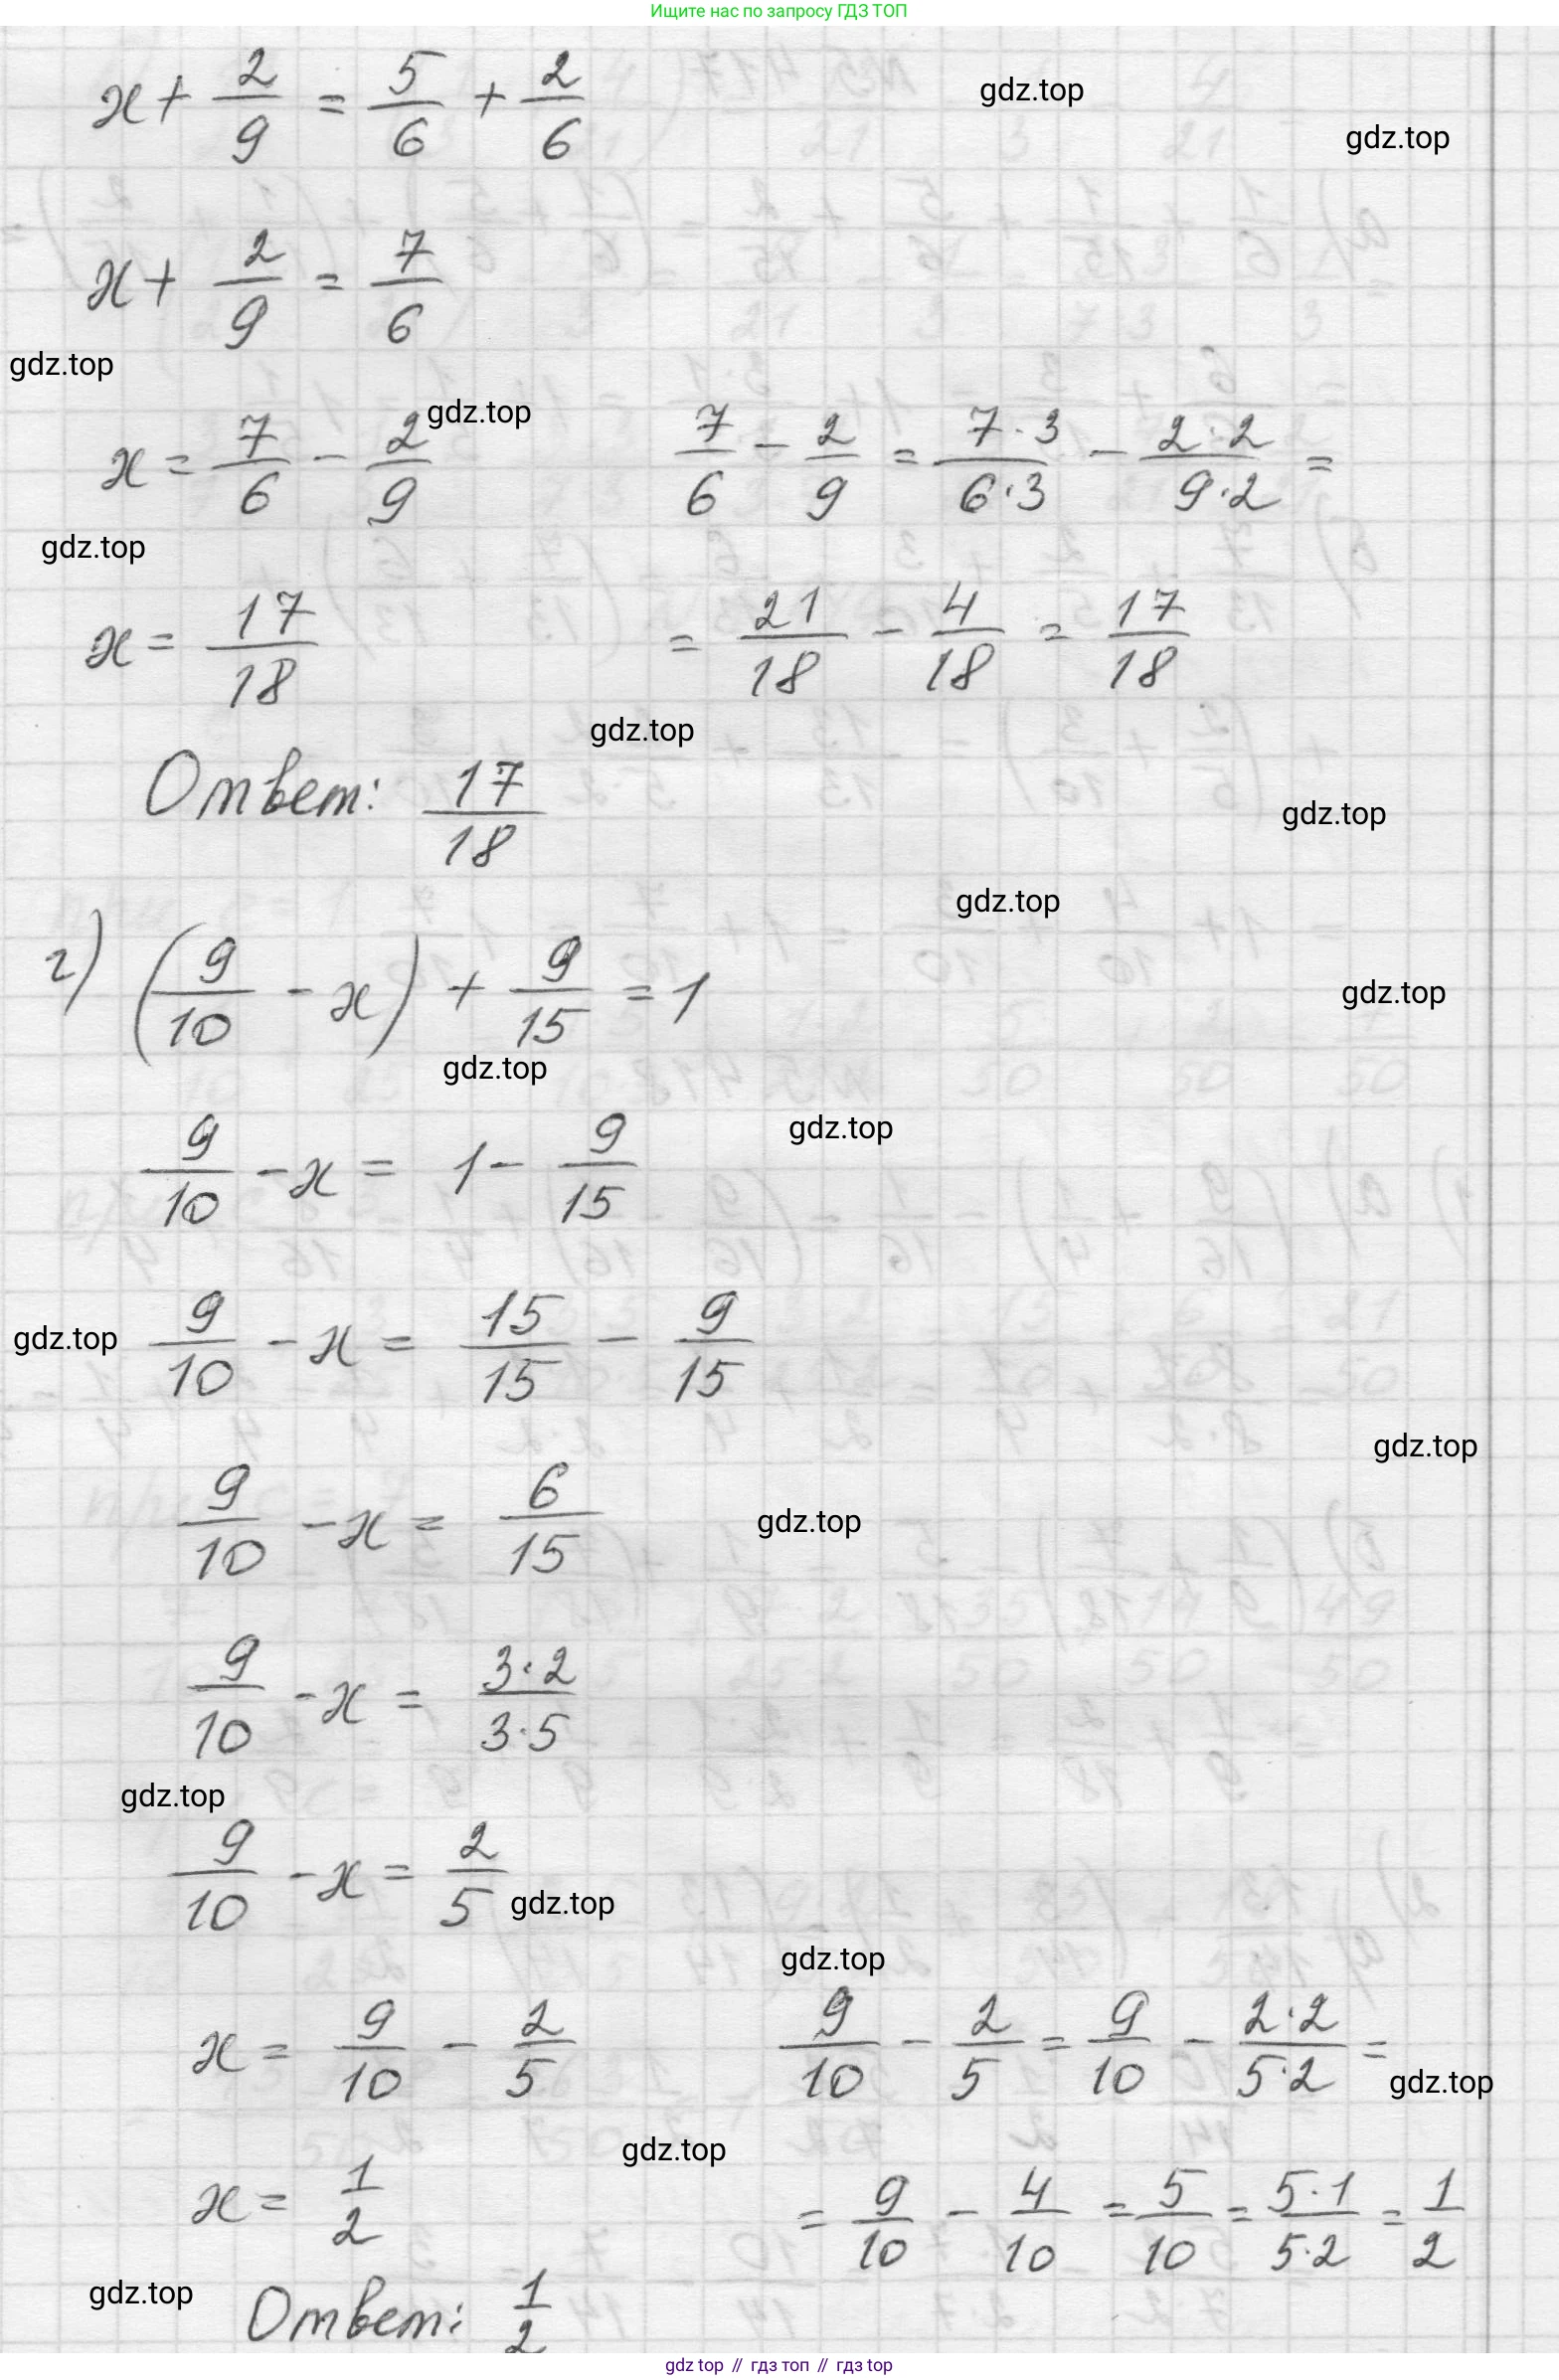 Ищите нас по запросу ГДЗ ТОП
x + 2/9 = 5/6 + 2/6
gdz.top
gdz.top
x + 2/9 = 7/6
gdz.top
gdz.top
x = 7/6 - 2/9
7/6 - 2/9 = 7·3/6·3 - 2·2/9·2 =
gdz.top
x = 17/18
= 21/18 - 4/18 = 17/18
gdz.top
Ответ: 17/18
gdz.top
gdz.top
г) (9/10 - x) + 9/15 = 1
gdz.top
gdz.top
gdz.top
9/10 - x = 1 - 9/15
gdz.top
9/10 - x = 15/15 - 9/15
gdz.top
9/10 - x = 6/15
gdz.top
9/10 - x = 3·2/3·5
gdz.top
9/10 - x = 2/5
gdz.top
gdz.top
x = 9/10 - 2/5
9/10 - 2/5 = 9/10 - 2·2/5·2 =
gdz.top
gdz.top
x = 1/2
= 9/10 - 4/10 = 5/10 = 5·1/5·2 = 1/2
gdz.top
Ответ: 1/2
gdz top // гдз топ // гдз top